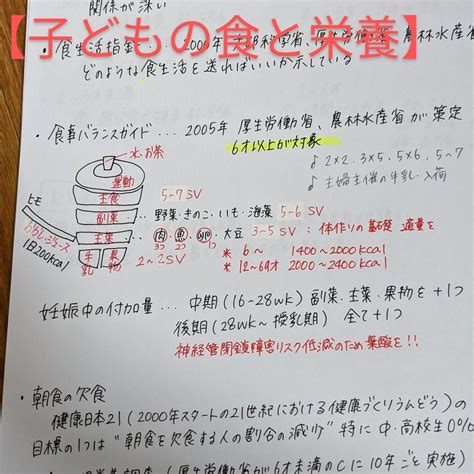 関係が深い
【子どもの食と栄養】
・食生活指針 2000年
どのような食生活を送ればいいか示している
・食事バランスガイド... 2005年 厚生労働省、農林水産省が策定
6才以上が対象
水・お茶
♪ 2×2、3×5、5×6、5~7
♪ 主婦主催の牛乳・入荷
運動
主食 5~7SV
副菜 ... 野菜・きのこ・いも・海藻 5~6 SV
ヒモ
主菜 ... 肉・魚・卵・大豆 3~5 SV : 体作りの基礎 適量を
おかし・ジュース
1日200kcal
牛乳 果物 2~2SV
* 6~ 1400~2000kcal
* 12~69才 2000~2400kcal
妊娠中の付加量 ... 中期(16~28wk) 副菜・主菜・果物を+1つ
後期(28wk~授乳期) 全て+1つ
神経管閉鎖障害リスク低減のため葉酸を!!
・朝食の欠食
健康日本21(2000年スタートの21世紀における健康づくりうんどう)の
目標の1つは"朝食を欠食する人の割合の減少" 特に中・高校生0%
(厚生労働省が6才未満のCに10年ごと実施)